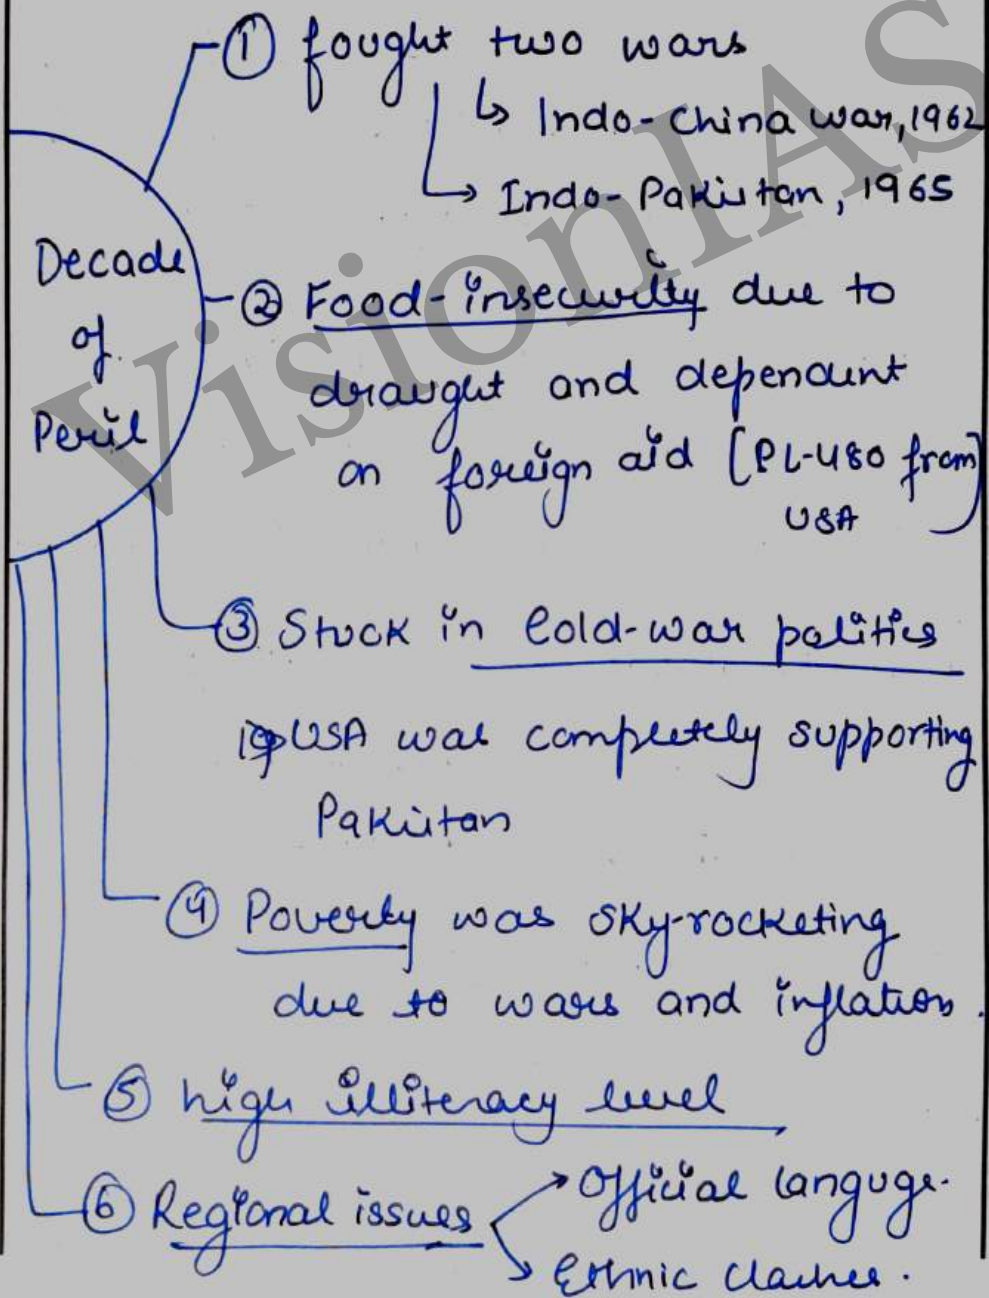 ① fought two wars
↳ Indo-China war, 1962
→ Indo-Pakistan, 1965
Decade
of
Peril
② Food-insecurity due to
draught and dependent
on foreign aid [PL-480 from
USA
③ Stuck in Cold-war politics
USA was completely supporting
Pakistan
④ Poverty was sky-rocketing
due to wars and inflation.
⑤ high illiteracy level
⑥ Regional issues
→ Official languge.
→ Ethnic clashes.
VisionIAS